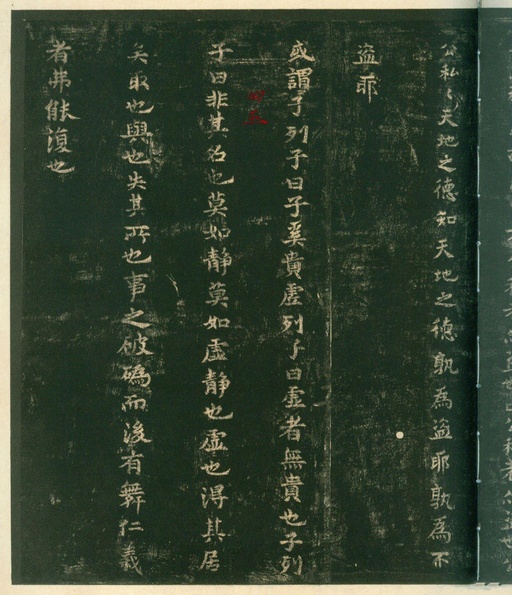 公私之天地之德知天地之德孰為盜耶孰為不
盜耶
或謂子列子曰子奚貴虛列子曰虛者無貴也子列
子曰非其名也莫如靜莫如虛靜也虛也得其居
矣取也與也失其所也事之破䃣而後有舞仁義
者弗能復也